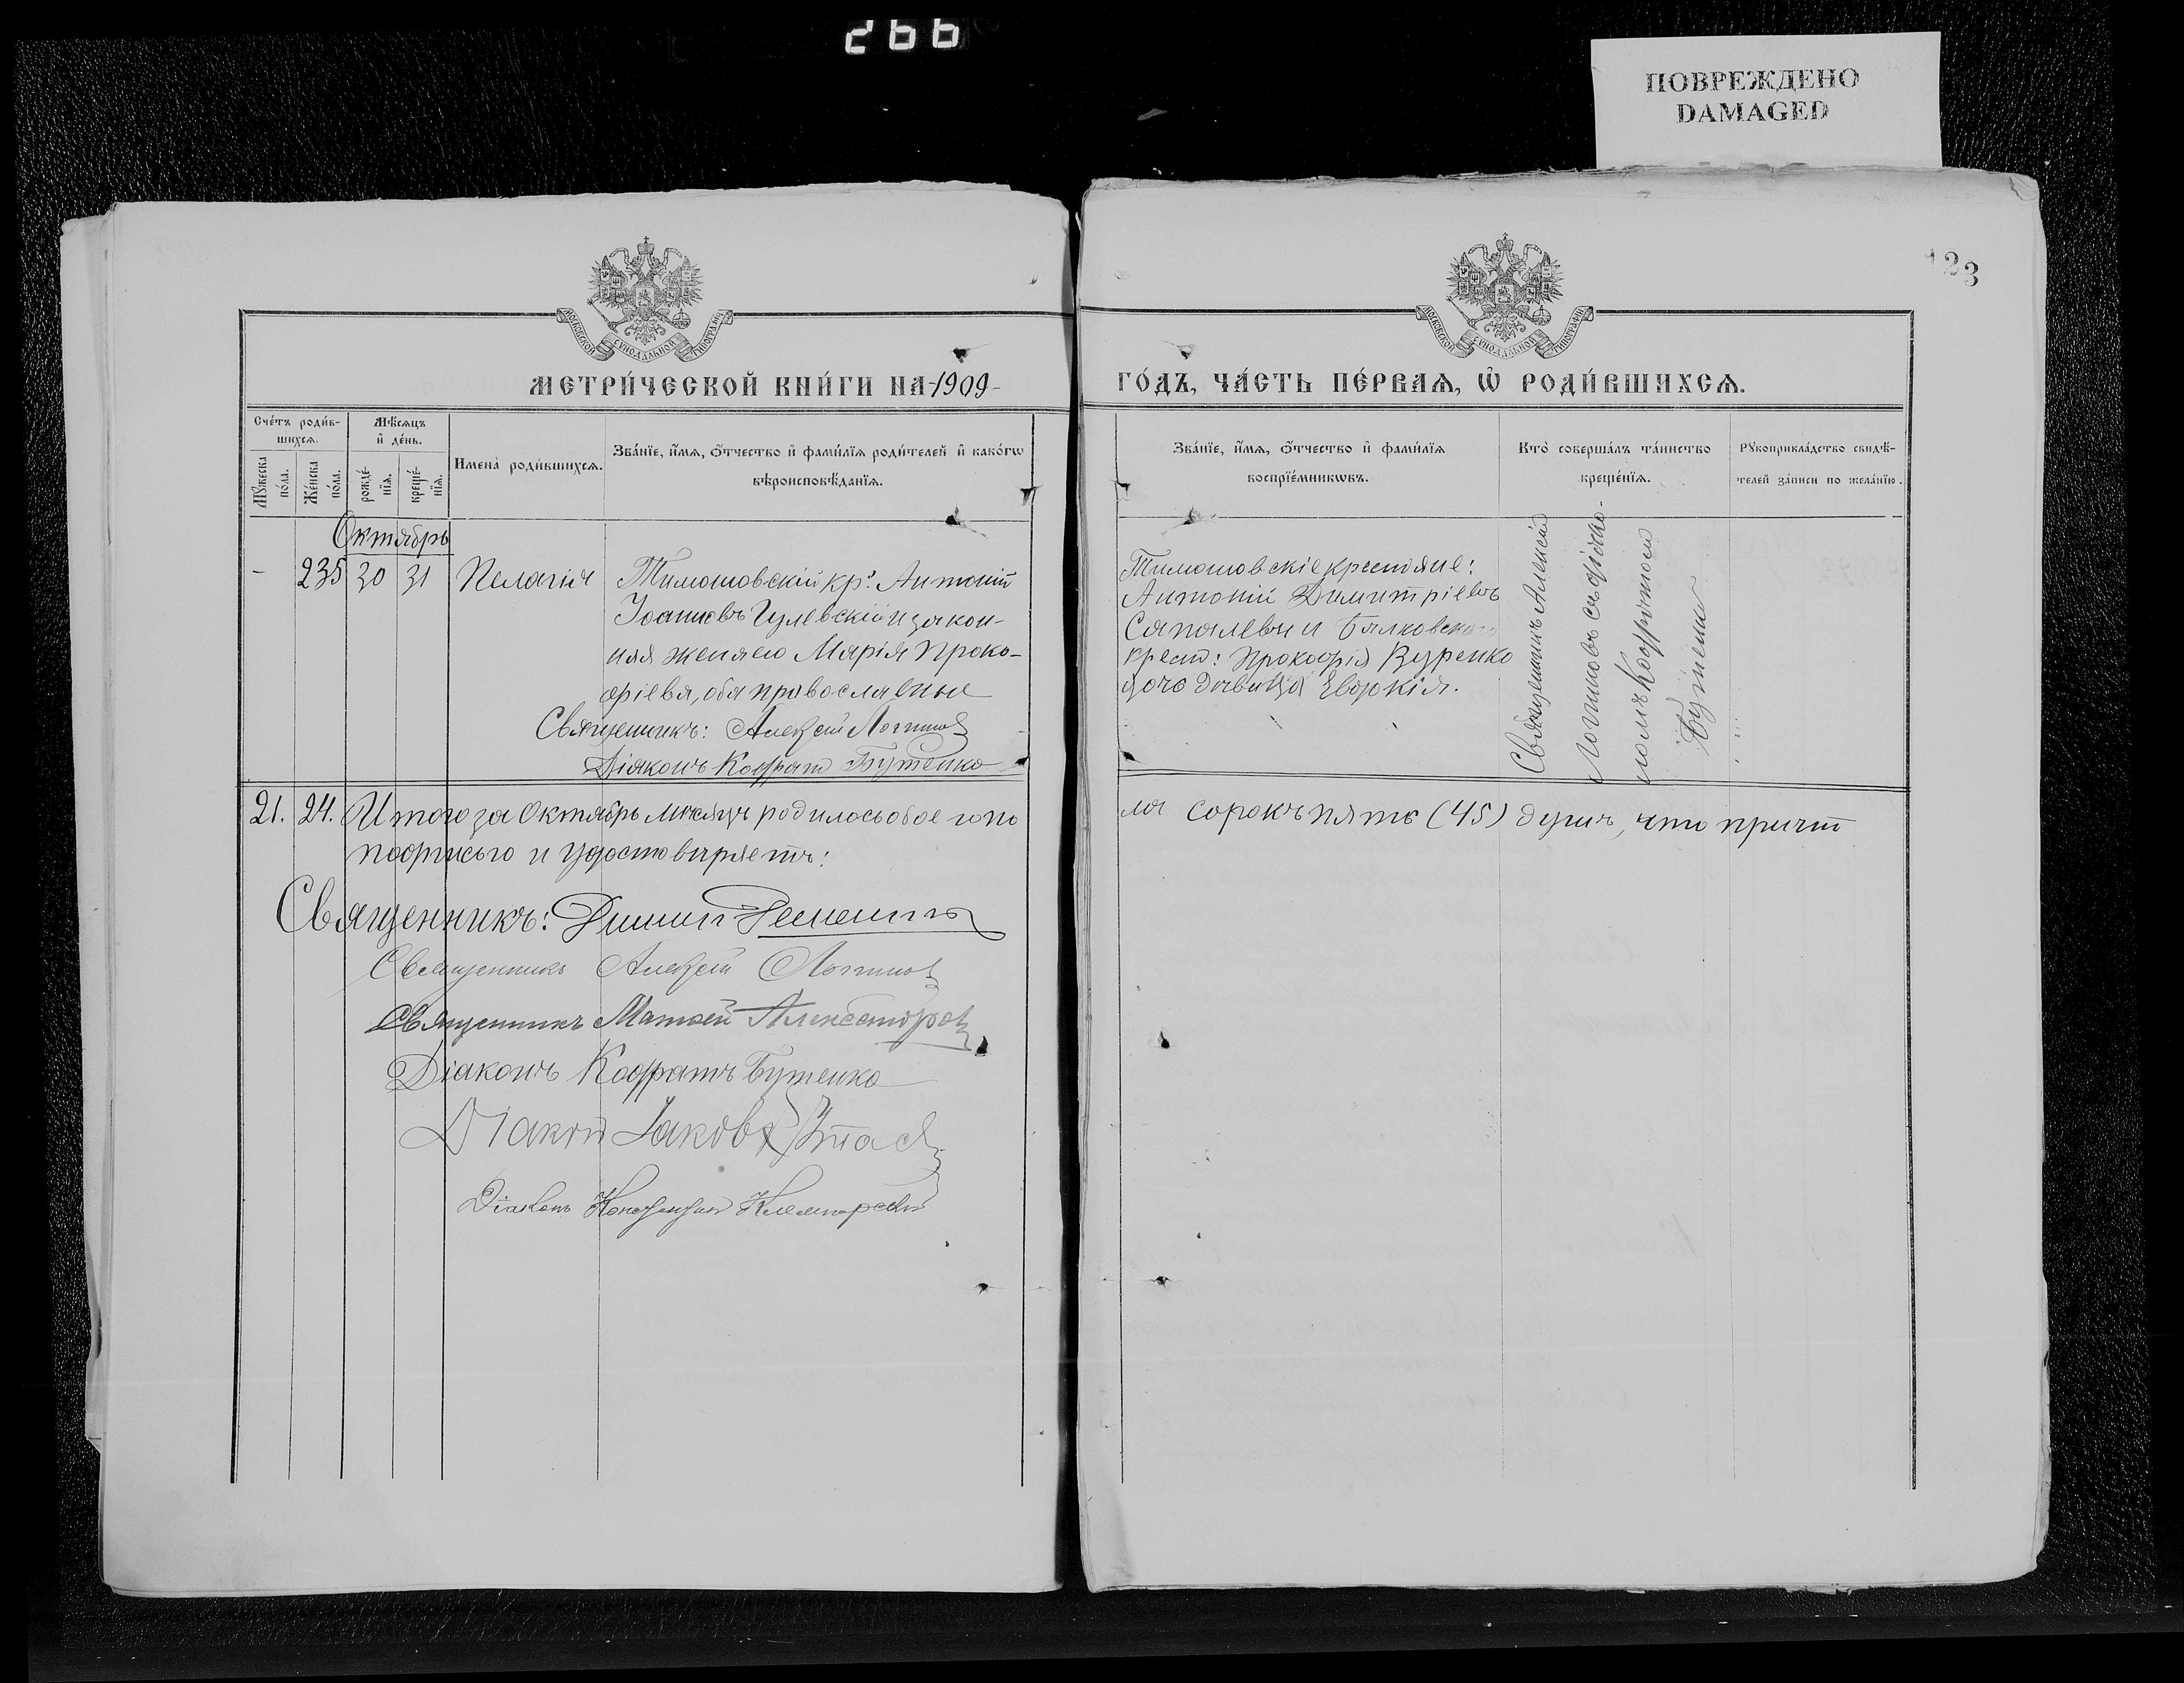 266
ПОВРЕЖДЕНО
DAMAGED
123
МОСКОВСКОЙ СѴНОДАЛЬНОЙ ТИПОГРАФІИ
МОСКОВСКОЙ СѴНОДАЛЬНОЙ ТИПОГРАФІИ
МЕТРИ́ЧЕСКОЙ КНИ́ГИ НА 1909
ГО́ДЪ, ЧА́СТЬ ПЕ́РВАѦ, Ѡ҆ РОДИ́ВШИХСѦ.
Сче́тъ роди́в-
шихсѧ.
Мꙋжеска по́ла.
Же́нска по́ла.
Мѣ́сѧцъ
и҆ де́нь.
рожде́-
нїѧ.
креще́-
нїѧ.
И҆мена̀ роди́вшихсѧ.
Зва́нїе, и҆́мѧ, ѻ҆́тчество и҆ фами́лїѧ роди́телей и҆ како́гѡ
вѣроисповѣ́данїѧ.
Зва́нїе, и҆́мѧ, ѻ҆́тчество и҆ фами́лїѧ
воспрїе́мникѡвъ.
Кто̀ соверша́лъ та́инство
креще́нїѧ.
Рꙋкоприкла́дство свидѣ́-
телей за́писи по жела́нїю.
Октябрь
- 235 30 31 Пелагія
Тимошовскій кр: Антоній
Іоанновъ Гулевскій и закон-
ная жена его Марія Проко-
фіева, оба православные
Священникъ: Алексѣй Логиновъ
Діаконъ Кодратъ Бутенко
Тимошовскіе крестьяне:
Антоній Димитріевъ
и
крест: Прокофія
дочь дѣвица Евдокія.
Священникъ Алексѣй
Логиновъ съ діако-
номъ Кодратомъ
Бутенко
21. 24. Итого за Октябрь мѣсяцъ родилось обоего по
ла сорокъ пять (45) душъ, что причт
подписью и удостовѣряетъ:
Священникъ:
Священникъ Алексѣй Логиновъ
Священникъ Матвѣй Александровъ
Діаконъ Кодратъ Бутенко
Діаконъ Іаковъ
Діаконъ Константинъ